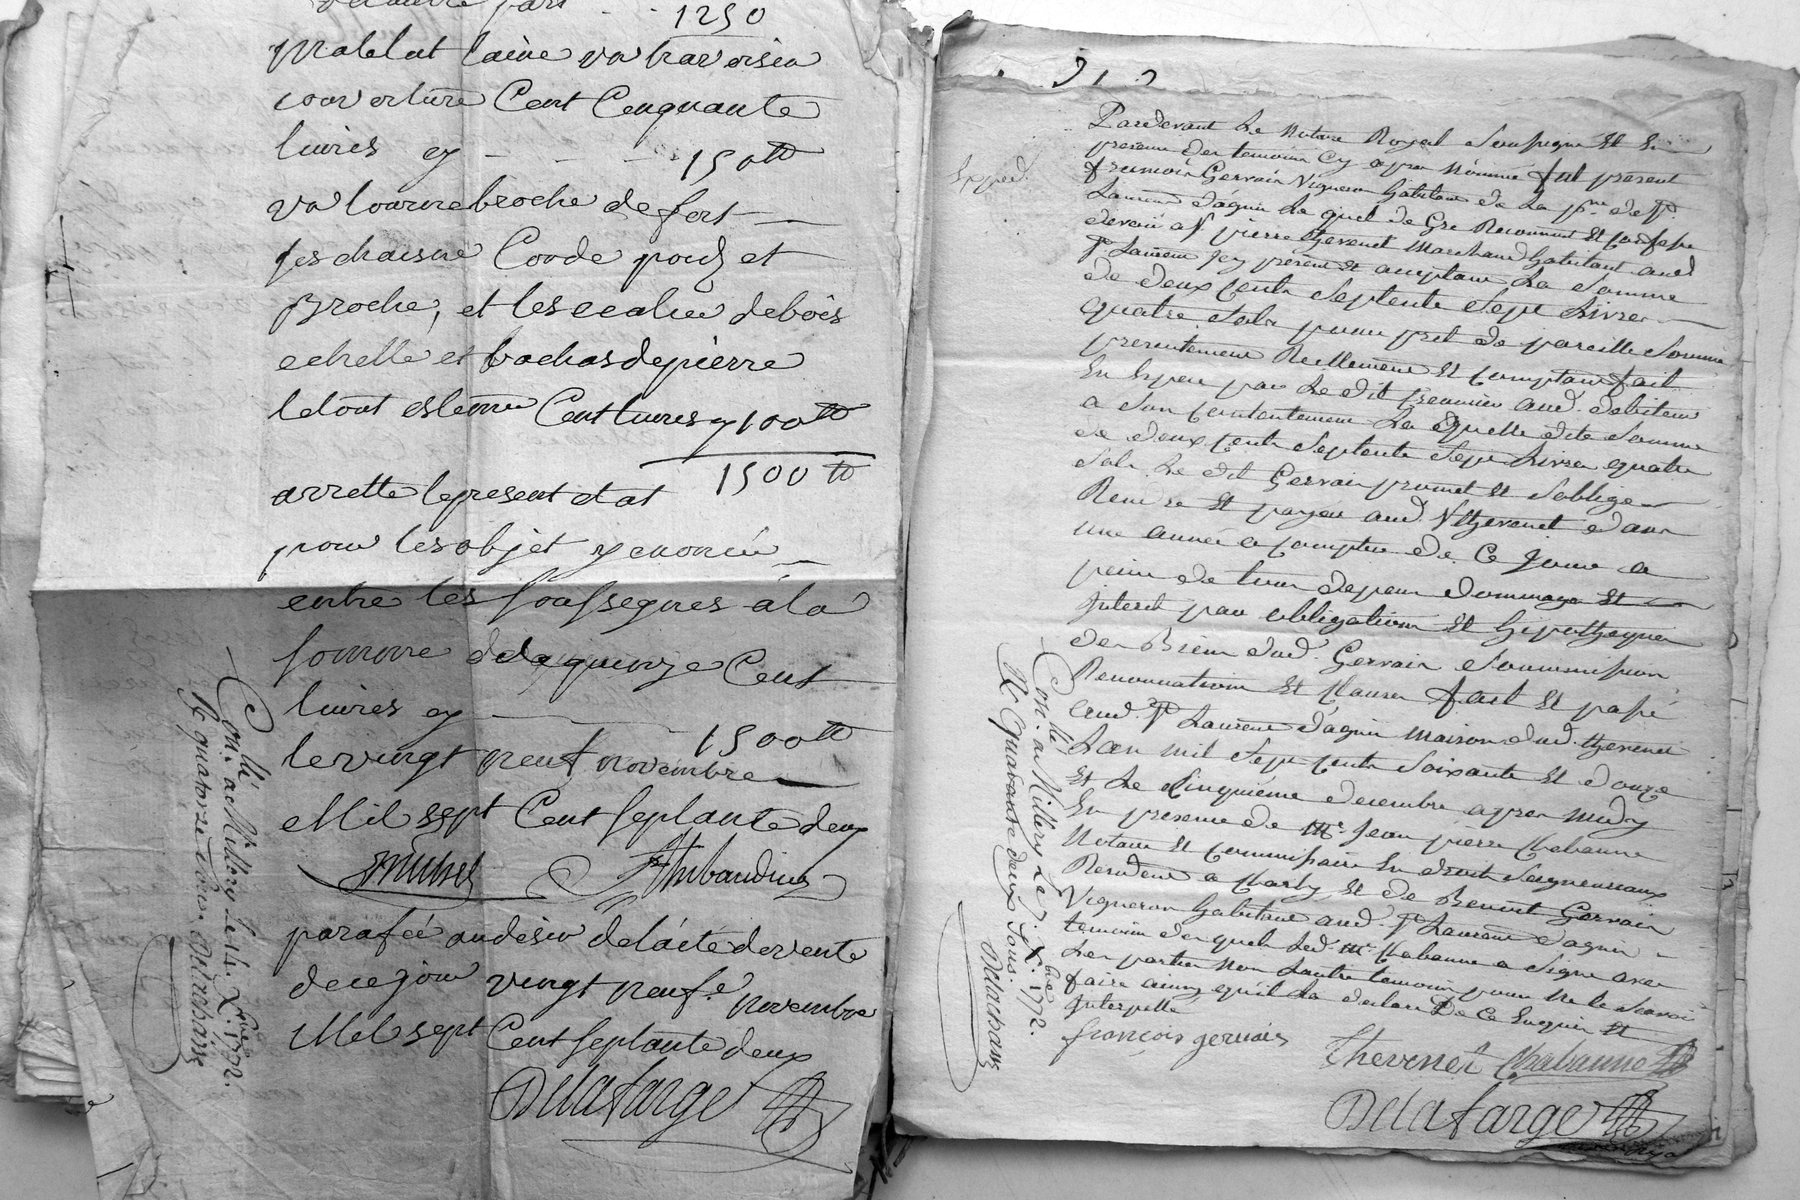 1250
couverture Cent Cenquante
livres ey - - - 150 tt
broche de fert
et
Broche, et les de bois
echelle et bachas de pierre
le tout Cent livres ey 100 tt
1500 tt
arrette le present etat
pour les objet y enoncée
entre les soussegnes a la
somme de quinze Cent
livres ey
1500 tt
le vingt neuf novembre
Mil sept Cent septante deux
Thibaudier
parafée au desir de lacte de vente
de ce jour vingt neuf.e novembre
Mil sept Cent septante deux
Delafarge
Con.lé a Millery le 14. X.bre 1772.
R. quatorze Delachasse
Expéd.
Pardevant Le Notaire Royal Soussigné Et En
presence des temoins Cy apres Nommés fut present
françois Gervais Vigneron habitant de La p.sse de S.t
Laurent d'agny Le quel de Gré Reconnait Et Confesse
devoir a S.r pierre thevenet Marchand habitant aud.
S.t Laurent Icy present Et acceptant La Somme
de deux Cents Septente Sept Livres
quatre Sols pour pret de pareille Somme
presentement Reellement Et Comptant fait
En Espece par Le dit aud. debiteur
a Son Contentement La quelle dite Somme
de deux Cents Septente Sept Livres quatre
Sols Le dit Gervais promet Et S'oblige
Rendre Et payer aud. thevenet dans
une année a Compter de Ce Jour a
peine de tous depens dommages Et
Interets par obligations Et hipotheques
des Biens dud. Gervais Soummission
Renonciations Et Clauses fait Et passé
aud. S.t Laurent d'agny maison dud. thevenet
L'an mil Sept Cents Soixante Et douze
Et Le Cinquiéme decembre apres midy
En presence de M.e Jean pierre Chabanne
Notaire Et Commissaire En droits Seigneuriaux
Resident a Charly, Et de Benoit Gervais
Vigneron habitant aud. S.t Laurent d'agny
temoins des quels Led. M.e Chabanne a Signé avec
Les parties Non Lautre temoin pour Ne le Scavoir
faire ainsy qu'il La declaré De Ce Enquis Et
Interpellé
françois gervais
Thevenet Chabanne
Delafarge
Con.lé a Millery Le 7. X.bre 1772.
R. Quarante deux Sous. Delachasse